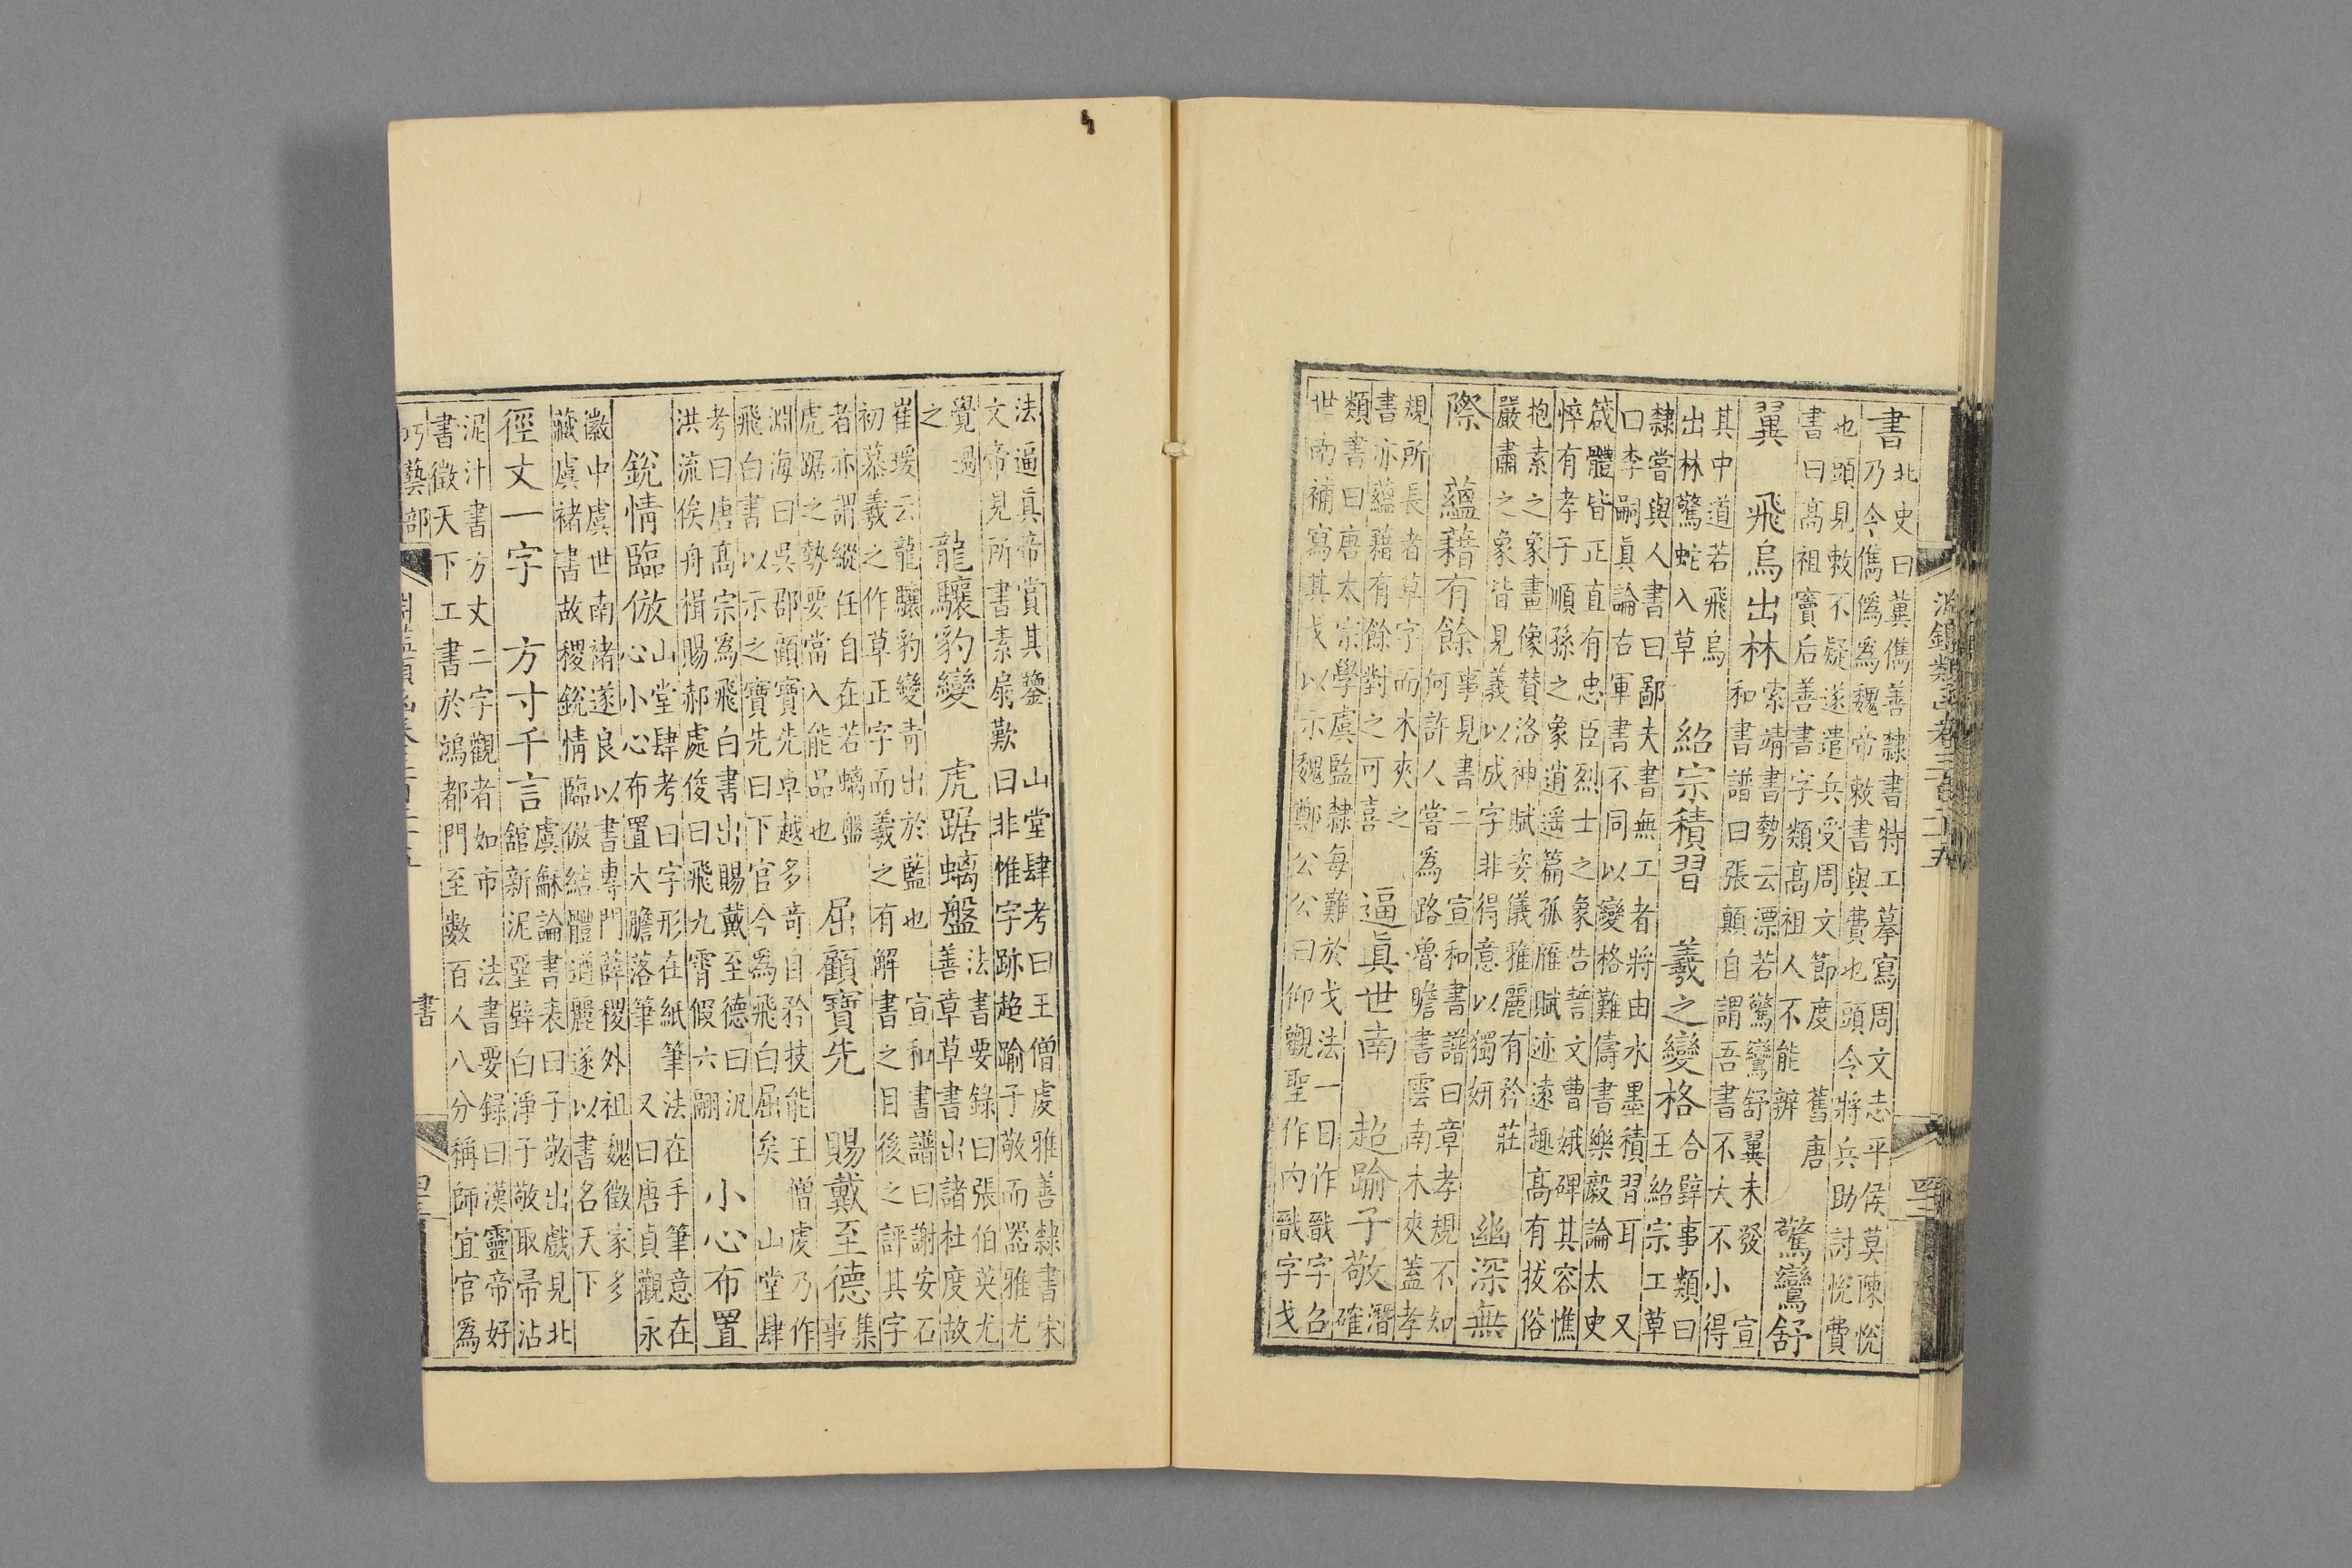 淵鑑類函卷三百二十五
書
北史曰冀儁善隸書特工摹寫周文志平侯莫陳悅
乃令儁偽為魏帝敕書與費也頭令將兵助討悅費
也頭見敕不疑遂遣兵受周文節度　舊唐
書曰高祖竇后善書字類高祖人不能辨
驚鸞舒
翼　飛烏出林
索靖書勢云漂若驚鸞舒翼未發　宣
和書譜曰張顛自謂吾書不大不小得
其中道若飛烏
出林驚蛇入草
紹宗積習　羲之變格
合璧事類曰
王紹宗工草
隸嘗與人書曰鄙夫書無工者將由水墨積習耳　又
口李嗣眞論右軍書不同以變格難儔書樂毅論太史
箴體皆正直有忠臣烈士之象告誓文曹娥碑其容憔
悴有孝子順孫之象逍遙篇孤雁賦迹遠趣高有拔俗
抱素之象畫像贊洛神賦姿儀雅麗有矜莊
嚴肅之象皆見義以成字非得意以獨妍
幽深無
際　蘊藉有餘
事見書二　宣和書譜曰章孝規不知
何許人嘗為路魯瞻書雲南木夾蓋孝
規所長者草字而木夾之
書亦蘊藉有餘對之可喜
逼眞世南　超踰子敬
潛
確
類書曰唐太宗學虞監隸每難於戈法一日作戩字召
世南補寫其戈以示魏鄭公公曰仰觀聖作內戩字戈
法逼眞帝賞其鑒　山堂肆考曰王僧虔雅善隸書宋
文帝見所書素扇歎曰非惟字跡超踰子敬而器雅尤
覺過
之
龍驤豹變　虎踞螭盤
法書要錄曰張伯英尤
善章草草書出諸杜度故
崔瑗云龍驤豹變青出於藍也　宣和書譜曰謝安石
初慕羲之作草正字而羲之有解書之目後之評其字
者亦謂縱任自在若螭盤
虎踞之勢要當入能品也
屈顧寶先　賜戴至德
集
事
淵海曰吳郡顧寶先卓越多奇自矜技能王僧虔乃作
飛白書以示之寶先曰下官今為飛白屈矣　山堂肆
考曰唐高宗為飛白書出賜戴至德曰汎
洪流俟舟楫賜郝處俊曰飛九霄假六翮
小心布置
銳情臨倣
山堂肆考曰字形在紙筆法在手筆意在
心小心布置大膽落筆　又曰唐貞觀永
徽中虞世南諸遂良以書專門薛稷外祖魏徵家多
藏虞褚書故稷銳情臨倣結體遒麗遂以書名天下
徑丈一字　方寸千言
虞龢論書表曰子敬出戲見北
館新泥堊壁白淨子敬取帚沾
泥汁書方丈二字觀者如市　法書要錄曰漢靈帝好
書徵天下工書於鴻都門至數百人八分稱師宜官為
巧藝部
書